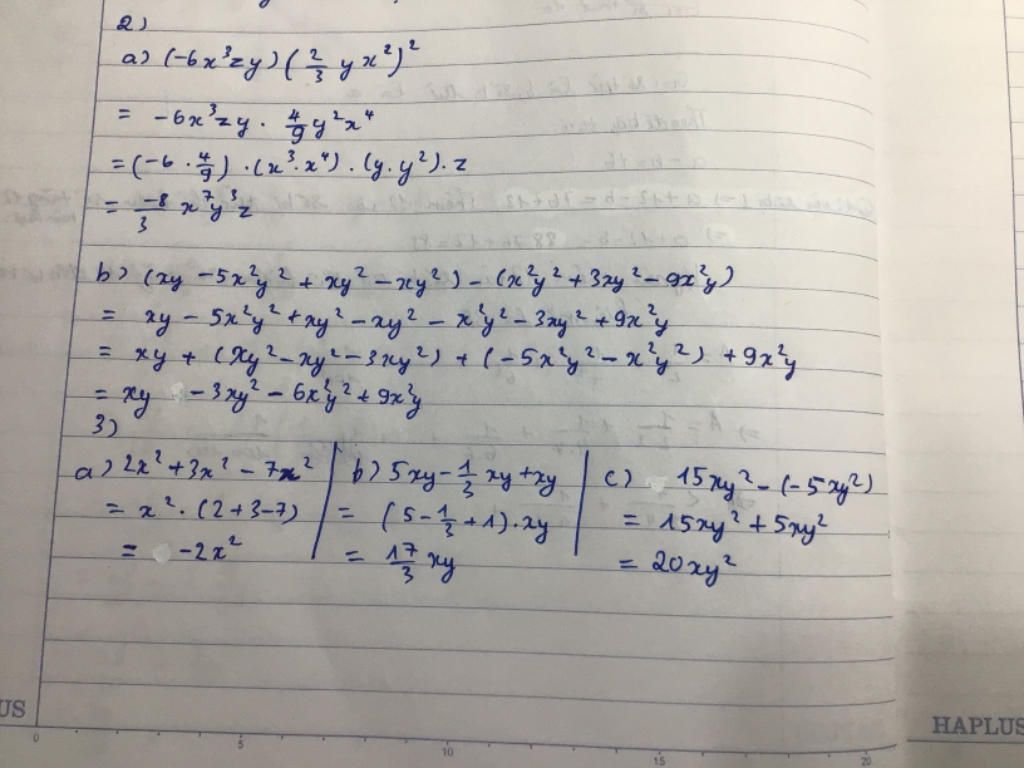 2)
a) (-6x³zy)(2/3 yx²)²
= -6x³zy . 4/9 y²x⁴
= (-6 . 4/9) . (x³.x⁴) . (y.y²).z
= -8/3 x⁷y³z
b) (xy - 5x²y² + xy² - xy²) - (x²y² + 3xy² - 9x²y)
= xy - 5x²y² + xy² - xy² - x²y² - 3xy² + 9x²y
= xy + (xy² - xy² - 3xy²) + (-5x²y² - x²y²) + 9x²y
= xy - 3xy² - 6x²y² + 9x²y
3)
a) 2x² + 3x² - 7x²
= x² . (2+3-7)
= -2x²
b) 5xy - 1/3 xy + xy
= (5 - 1/3 + 1).xy
= 17/3 xy
c) 15xy² - (-5xy²)
= 15xy² + 5xy²
= 20xy²
US
HAPLUS
0 5 10 15 20